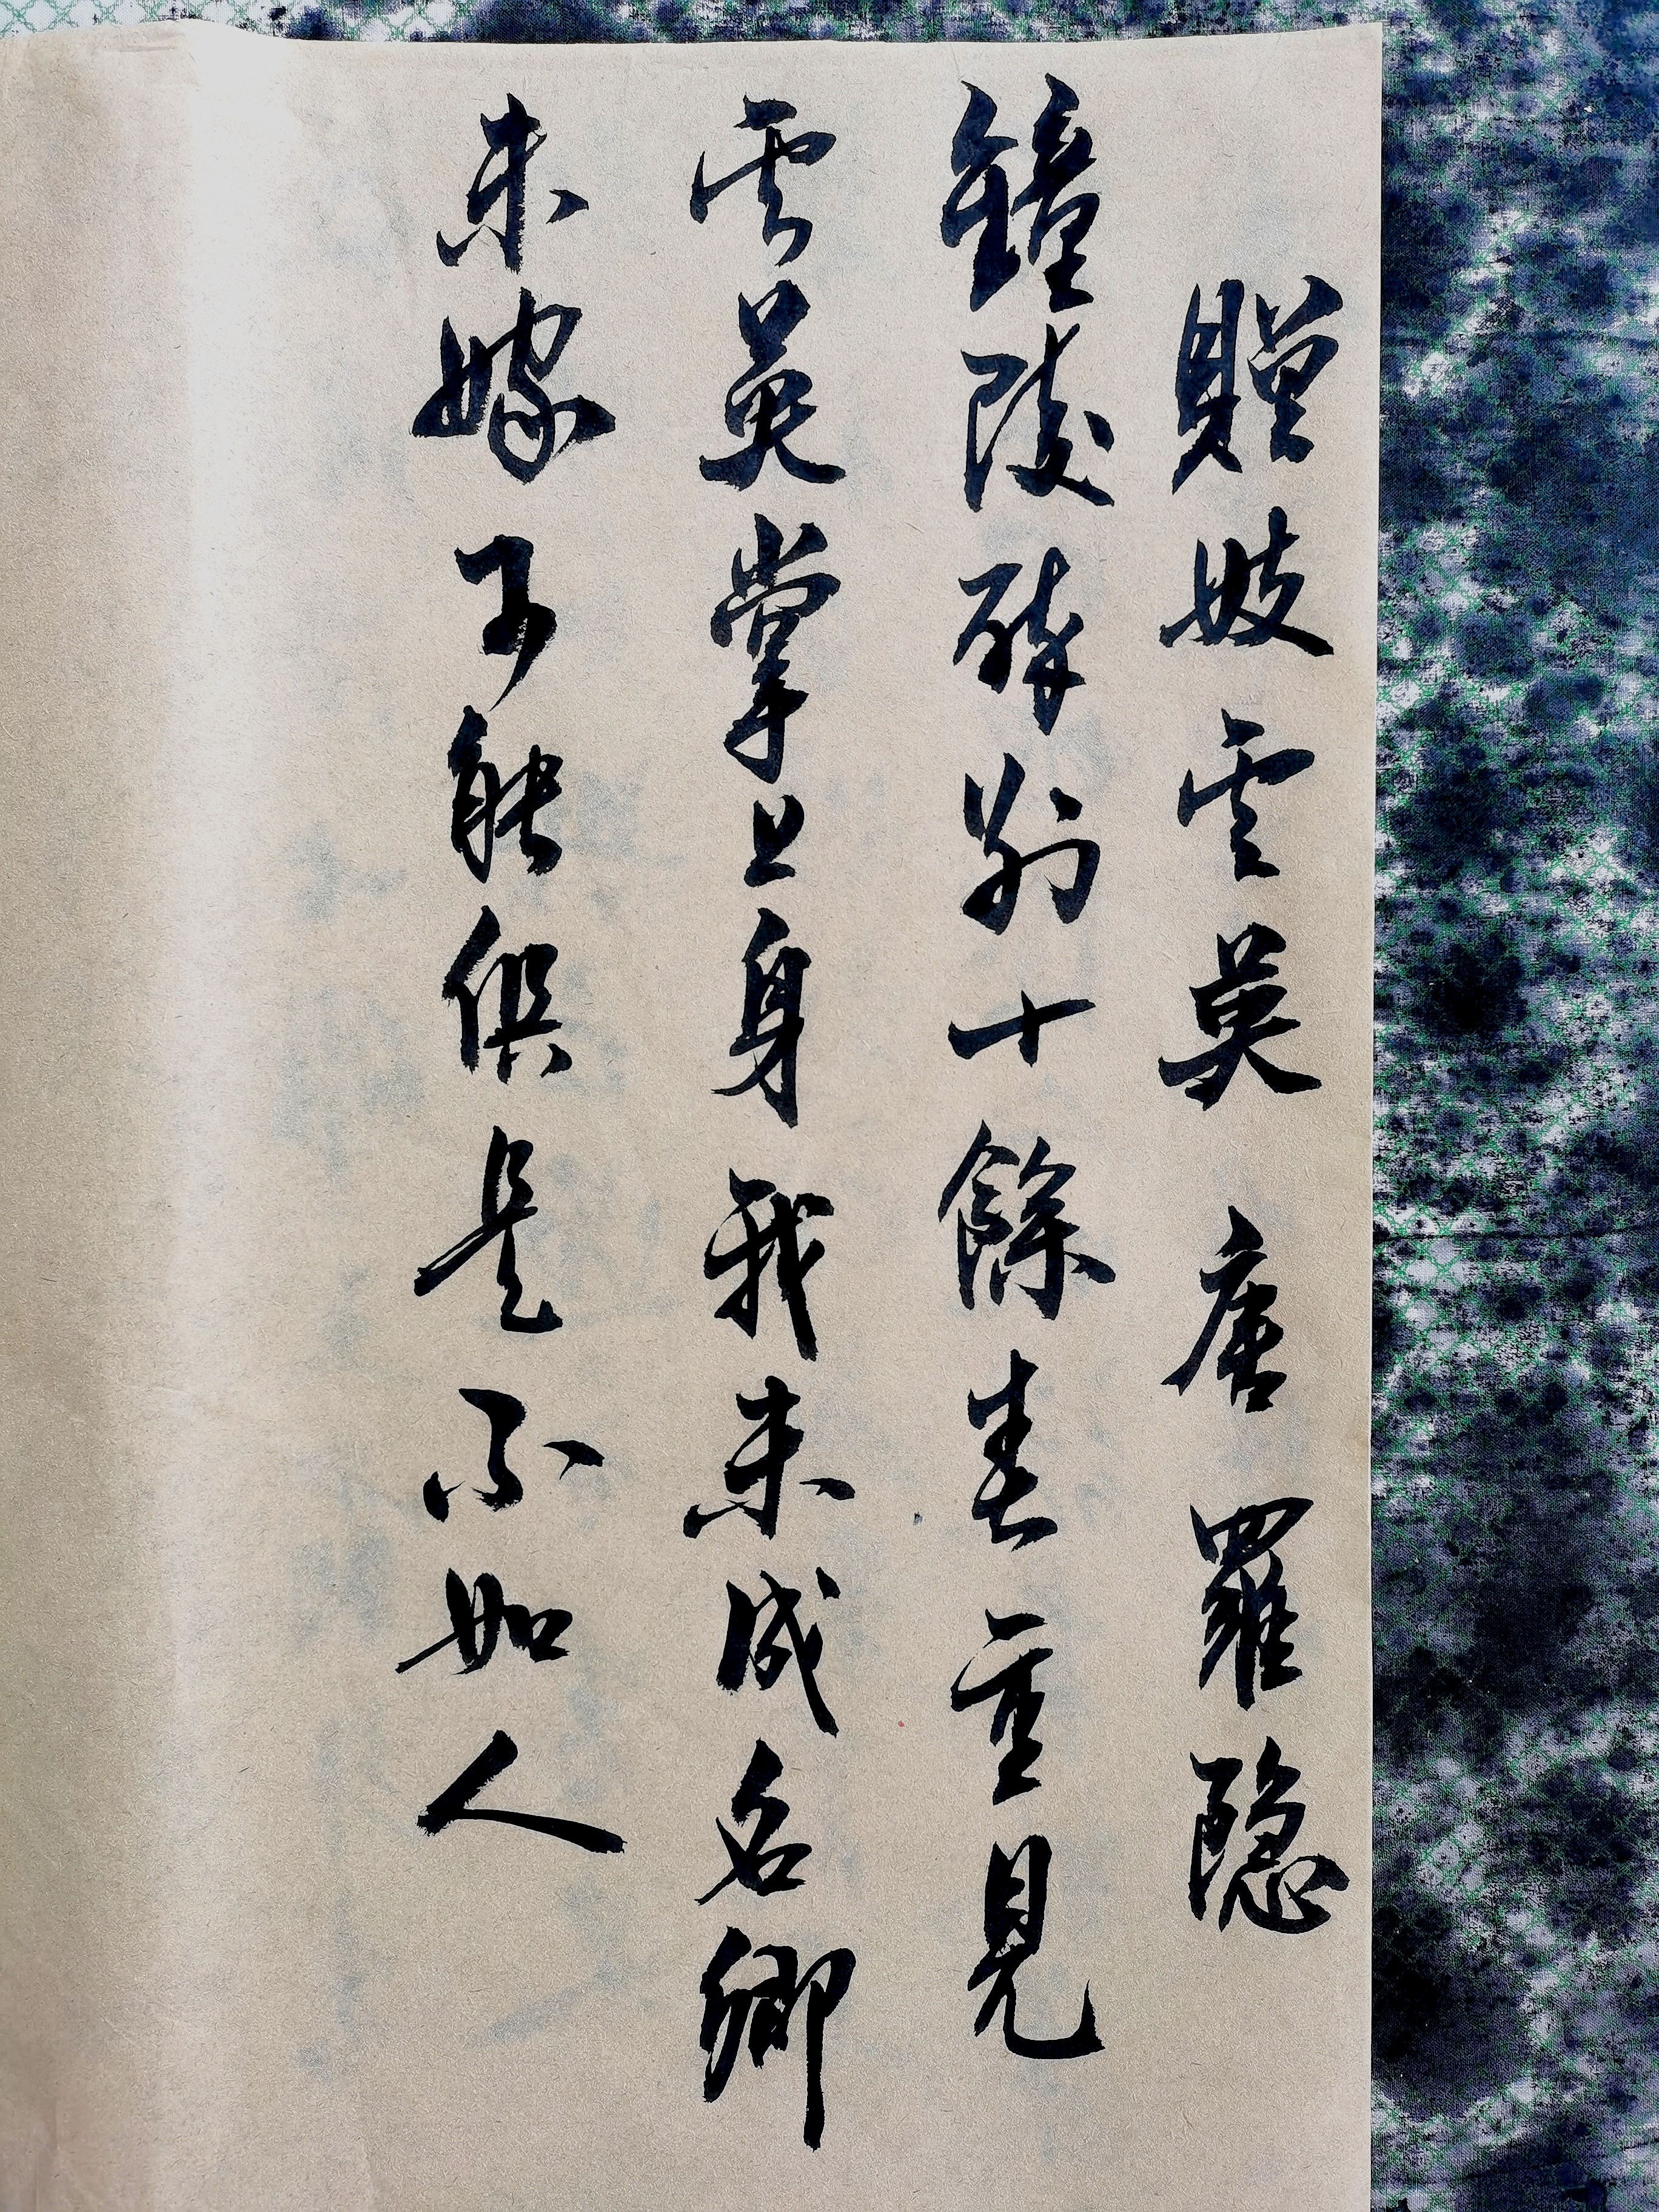 贈妓雲英 唐 羅隱
鐘陵醉別十餘春重見
雲英掌上身我未成名卿
未嫁可能俱是不如人